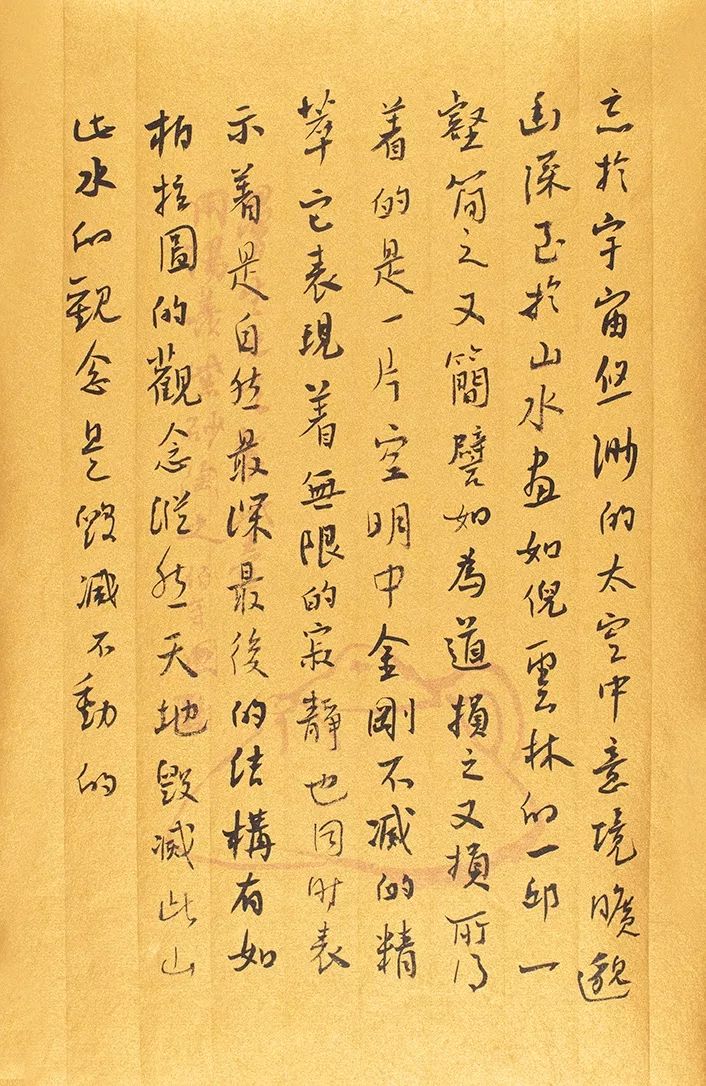 忘於宇宙悠渺的太空中意境曠邈
幽深至於山水畫如倪雲林的一邱一
壑简之又簡譬如為道損之又損所得
着的是一片空明中金剛不滅的精
萃它表現着無限的寂靜也同时表
示着是自然最深最後的结構有如
柏拉圖的觀念縱然天地毀滅此山
此水的觀念是毀滅不動的